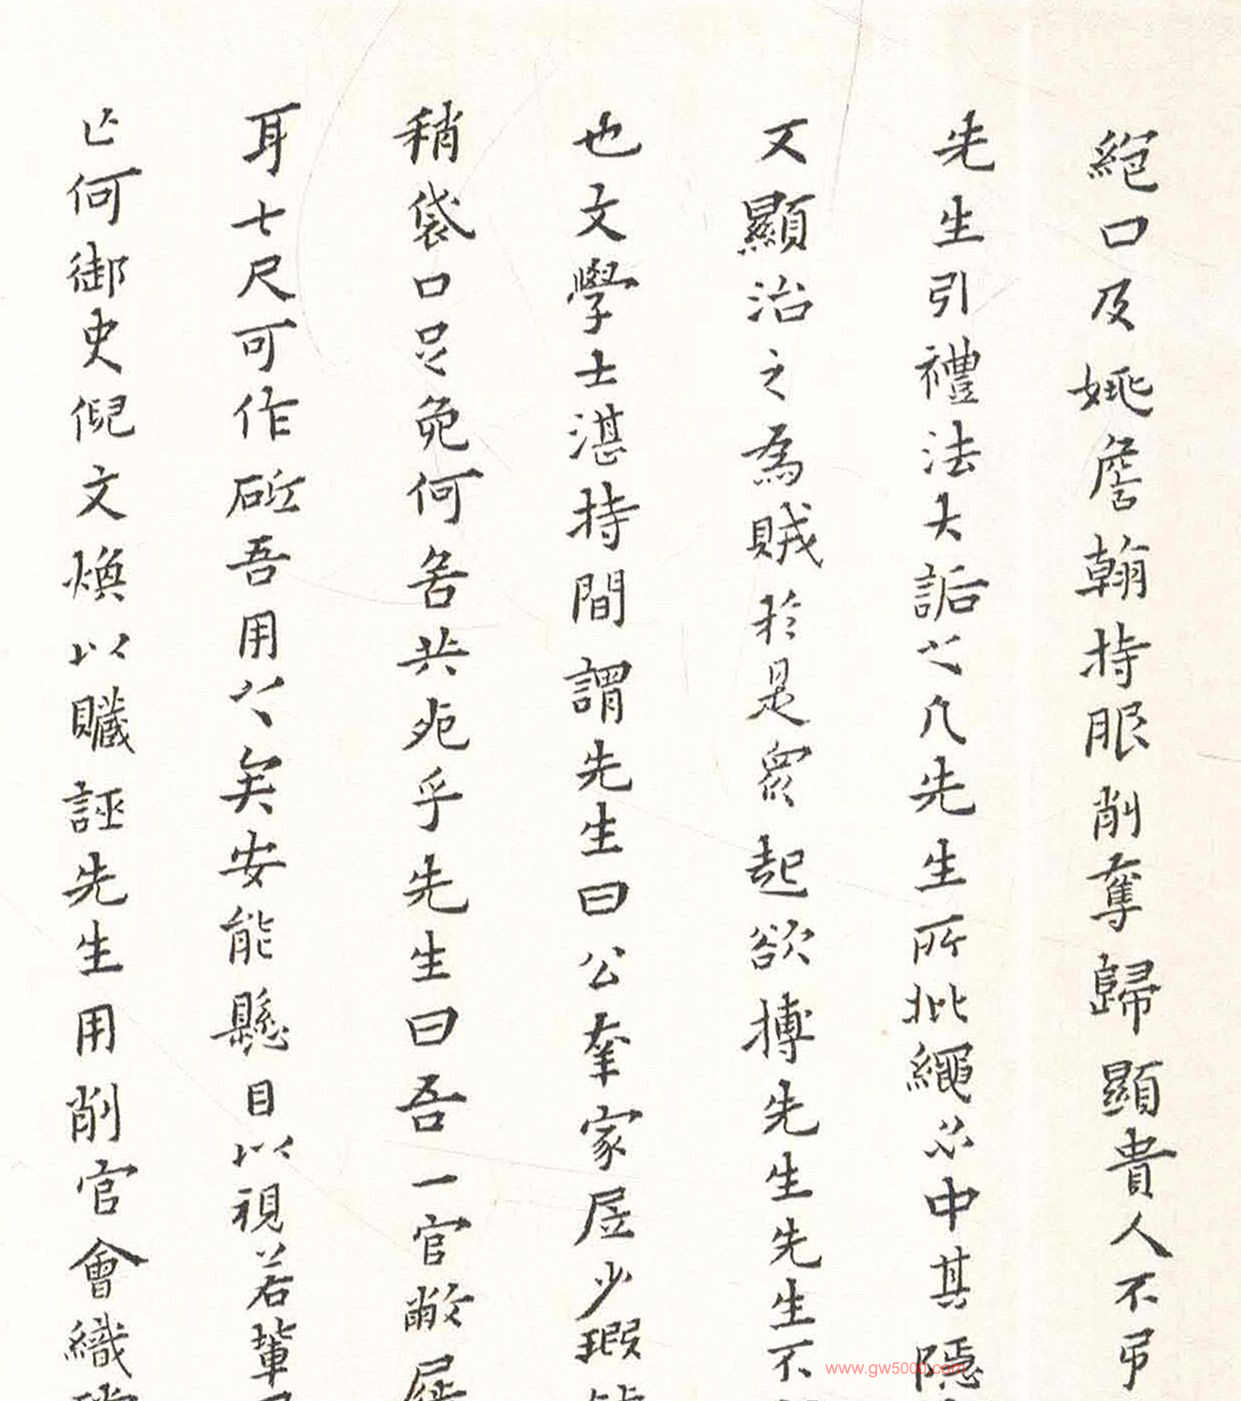 絕口及姚詹翰持服削奪歸顯貴人不弔
先生引禮法大詬之凡先生所批繩必中其隱
又顯治之為賊於是眾起欲搏先生先生不
也文學士湛持間謂先生曰公奎家居少瑕
稍袋口足免何苦共死乎先生曰吾一官敝屣
耳七尺可作砥吾用久矣安能懸目以視若輩
亡何御史倪文煥以贓誣先生用削官會織
www.gw5000.com